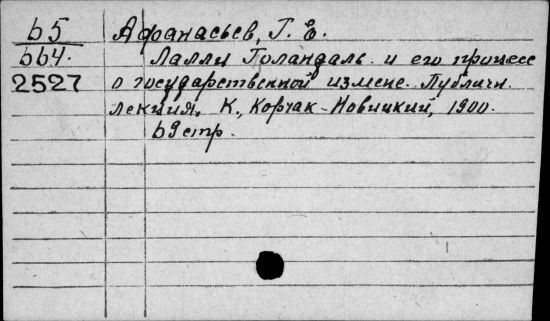 65 Афанасьев, Г. Е.
664. Лалли Голандаль и его процесс
2527 о государственной измене. Публичн.
лекция. К., Корчак-Новицкий, 1900.
69 стр.